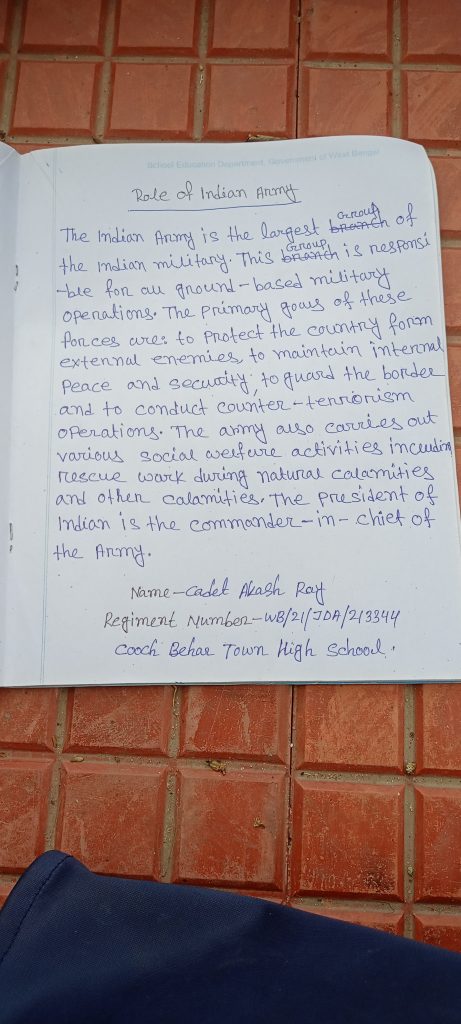 School Education Department, Government of West Bengal
Role of Indian Army
The Indian Army is the largest branch Group of
the indian military. This branch Group is responsi
-ble for all ground-based military
operations. The primary goals of these
forces are: to protect the country form
external enemies, to maintain internal
peace and security, to guard the border
and to conduct counter-terrorism
operations. The army also carries out
various social welfare activities including
rescue work during natural calamities
and other calamities. The president of
Indian is the commander-in-chief of
the Army.
Name-Cadet Akash Ray
Regiment Number-WB/21/JDA/213344
Cooch Behar Town High School.